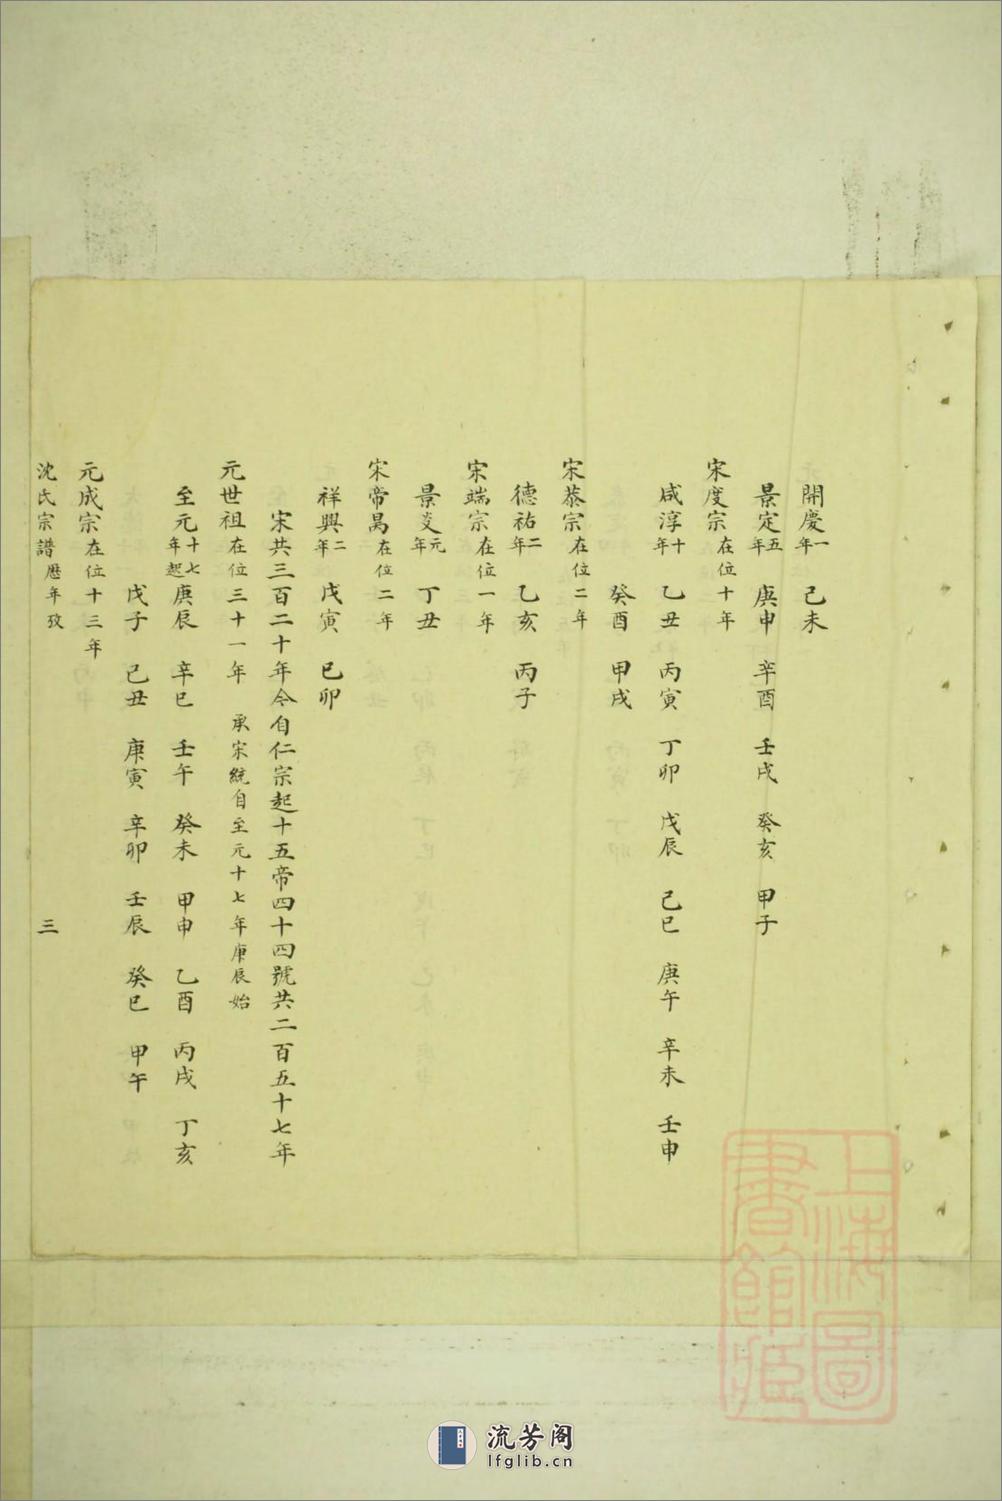 開慶一年 己未
景定五年 庚申 辛酉 壬戌 癸亥 甲子
宋度宗在位十年
咸淳十年 乙丑 丙寅 丁卯 戊辰 己巳 庚午 辛未 壬申
癸酉 甲戌
宋恭宗在位二年
德祐二年 乙亥 丙子
宋端宗在位一年
景炎元年 丁丑
宋帝昺在位二年
祥興二年 戊寅 己卯
宋共三百二十年今自仁宗起十五帝四十四號共二百五十七年
元世祖在位三十一年 承宋統自至元十七年庚辰始
至元十七年起 庚辰 辛巳 壬午 癸未 甲申 乙酉 丙戌 丁亥
戊子 己丑 庚寅 辛卯 壬辰 癸巳 甲午
元成宗在位十三年
沈氏宗譜 歷年攷 三
上海圖
書館藏
流芳阁
lfglib.cn